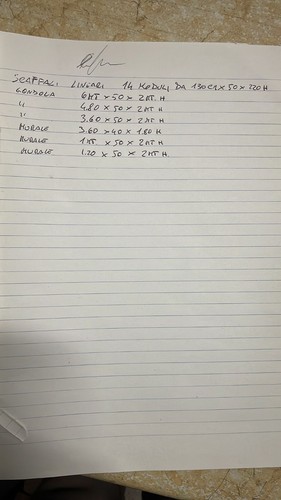 SCAFFALI LINEARI 14 MODULI DA 130CM X 50 X 220 H
GONDOLA 6 MT X 50 X 2 MT. H
" 4.80 X 50 X 2 MT H
" 3.60 X 50 X 2 MT H
MURALE 3.60 X 40 X 1.80 H
MURALE 1 MT X 50 X 2 MT. H
MURALE 1.20 X 50 X 2 MT H.